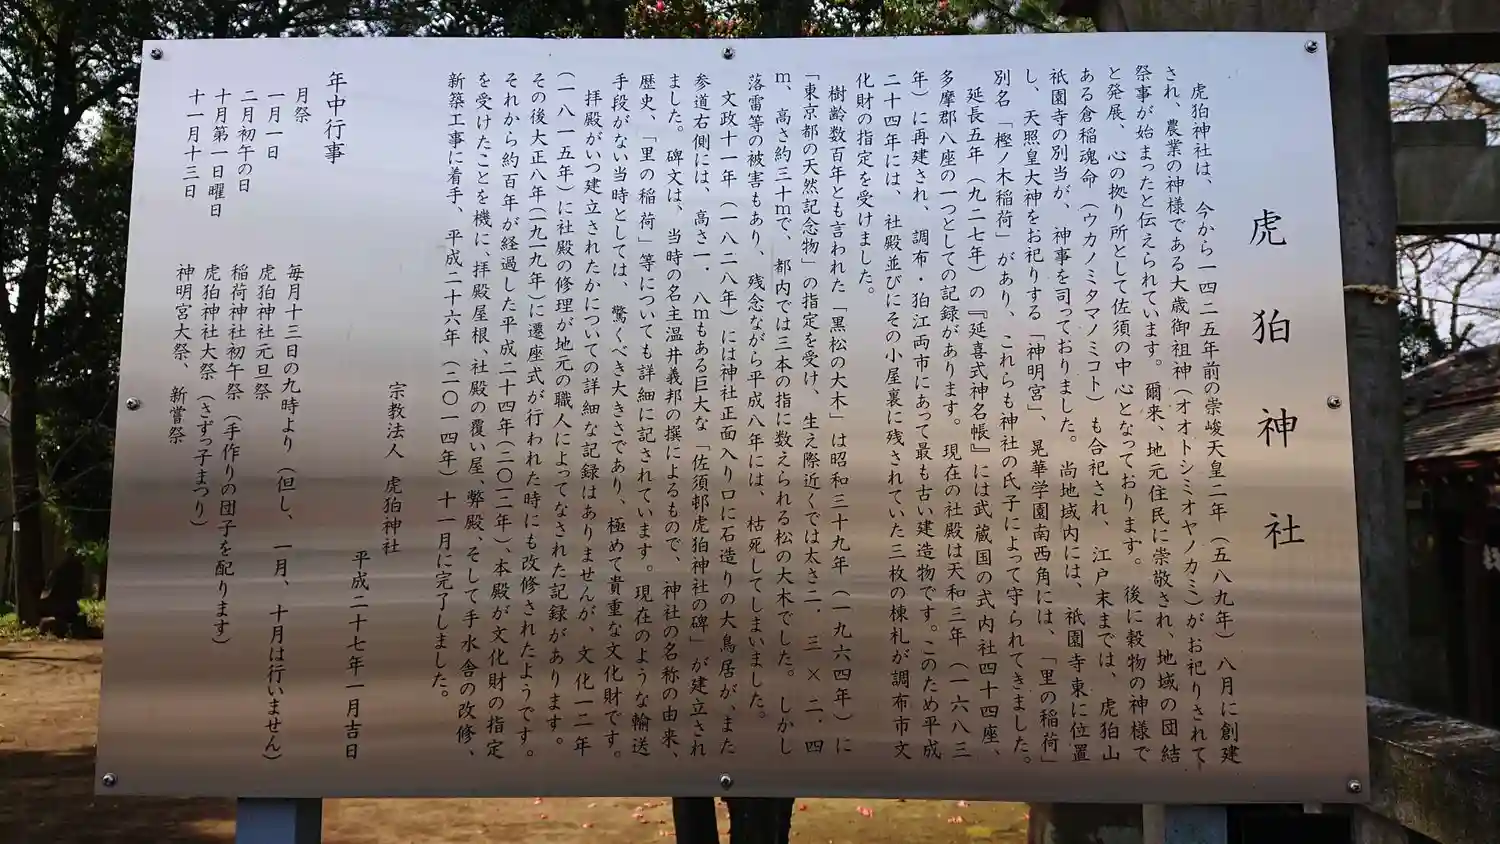 虎狛神社
虎狛神社は、今から一四二五年前の崇峻天皇二年（五八九年）八月に創建
され、農業の神様である大歳御祖神（オオトシミオヤノカミ）がお祀りされて
祭事が始まったと伝えられています。爾来、地元住民に崇敬され、地域の団結
と発展、心の拠り所として佐須の中心となっております。後に穀物の神様で
ある倉稲魂命（ウカノミタマノミコト）も合祀され、江戸末までは、虎狛山
祇園寺の別当が、神事を司っておりました。尚地域内には、祇園寺東に位置
し、天照皇大神をお祀りする「神明宮」、晃華学園南西角には、「里の稲荷」
別名「樫ノ木稲荷」があり、これらも神社の氏子によって守られてきました。
延長五年（九二七年）の『延喜式神名帳』には武蔵国の式内社四十四座、
多摩郡八座の一つとしての記録があります。現在の社殿は天和三年（一六八三
年）に再建され、調布・狛江両市にあって最も古い建造物です。このため平成
二十四年には、社殿並びにその小屋裏に残されていた三枚の棟札が調布市文
化財の指定を受けました。
樹齢数百年とも言われた「黒松の大木」は昭和三十九年（一九六四年）に
「東京都の天然記念物」の指定を受け、生え際近くでは太さ二．三×二．四
ｍ、高さ約三十ｍで、都内では三本の指に数えられる松の大木でした。しかし
落雷等の被害もあり、残念ながら平成八年には、枯死してしまいました。
文政十一年（一八二八年）には神社正面入り口に石造りの大鳥居が、また
参道右側には、高さ一．八ｍもある巨大な「佐須邨虎狛神社の碑」が建立され
ました。碑文は、当時の名主温井義邦の撰によるもので、神社の名称の由来、
歴史、「里の稲荷」等についても詳細に記されています。現在のような輸送
手段がない当時としては、驚くべき大きさであり、極めて貴重な文化財です。
拝殿がいつ建立されたかについての詳細な記録はありませんが、文化一二年
（一八一五年）に社殿の修理が地元の職人によってなされた記録があります。
その後大正八年（一九一九年）に遷座式が行われた時にも改修されたようです。
それから約百年が経過した平成二十四年（二〇一二年）、本殿が文化財の指定
を受けたことを機に、拝殿屋根、社殿の覆い屋、弊殿、そして手水舎の改修、
新築工事に着手、平成二十六年（二〇一四年）十一月に完了しました。
宗教法人　虎狛神社
平成二十七年一月吉日
年中行事
月祭　毎月十三日の九時より（但し、一月、十月は行いません）
一月一日　虎狛神社元旦祭
二月初午の日　稲荷神社初午祭（手作りの団子を配ります）
十月第一日曜日　虎狛神社大祭（さずっ子まつり）
十一月十三日　神明宮大祭、新嘗祭